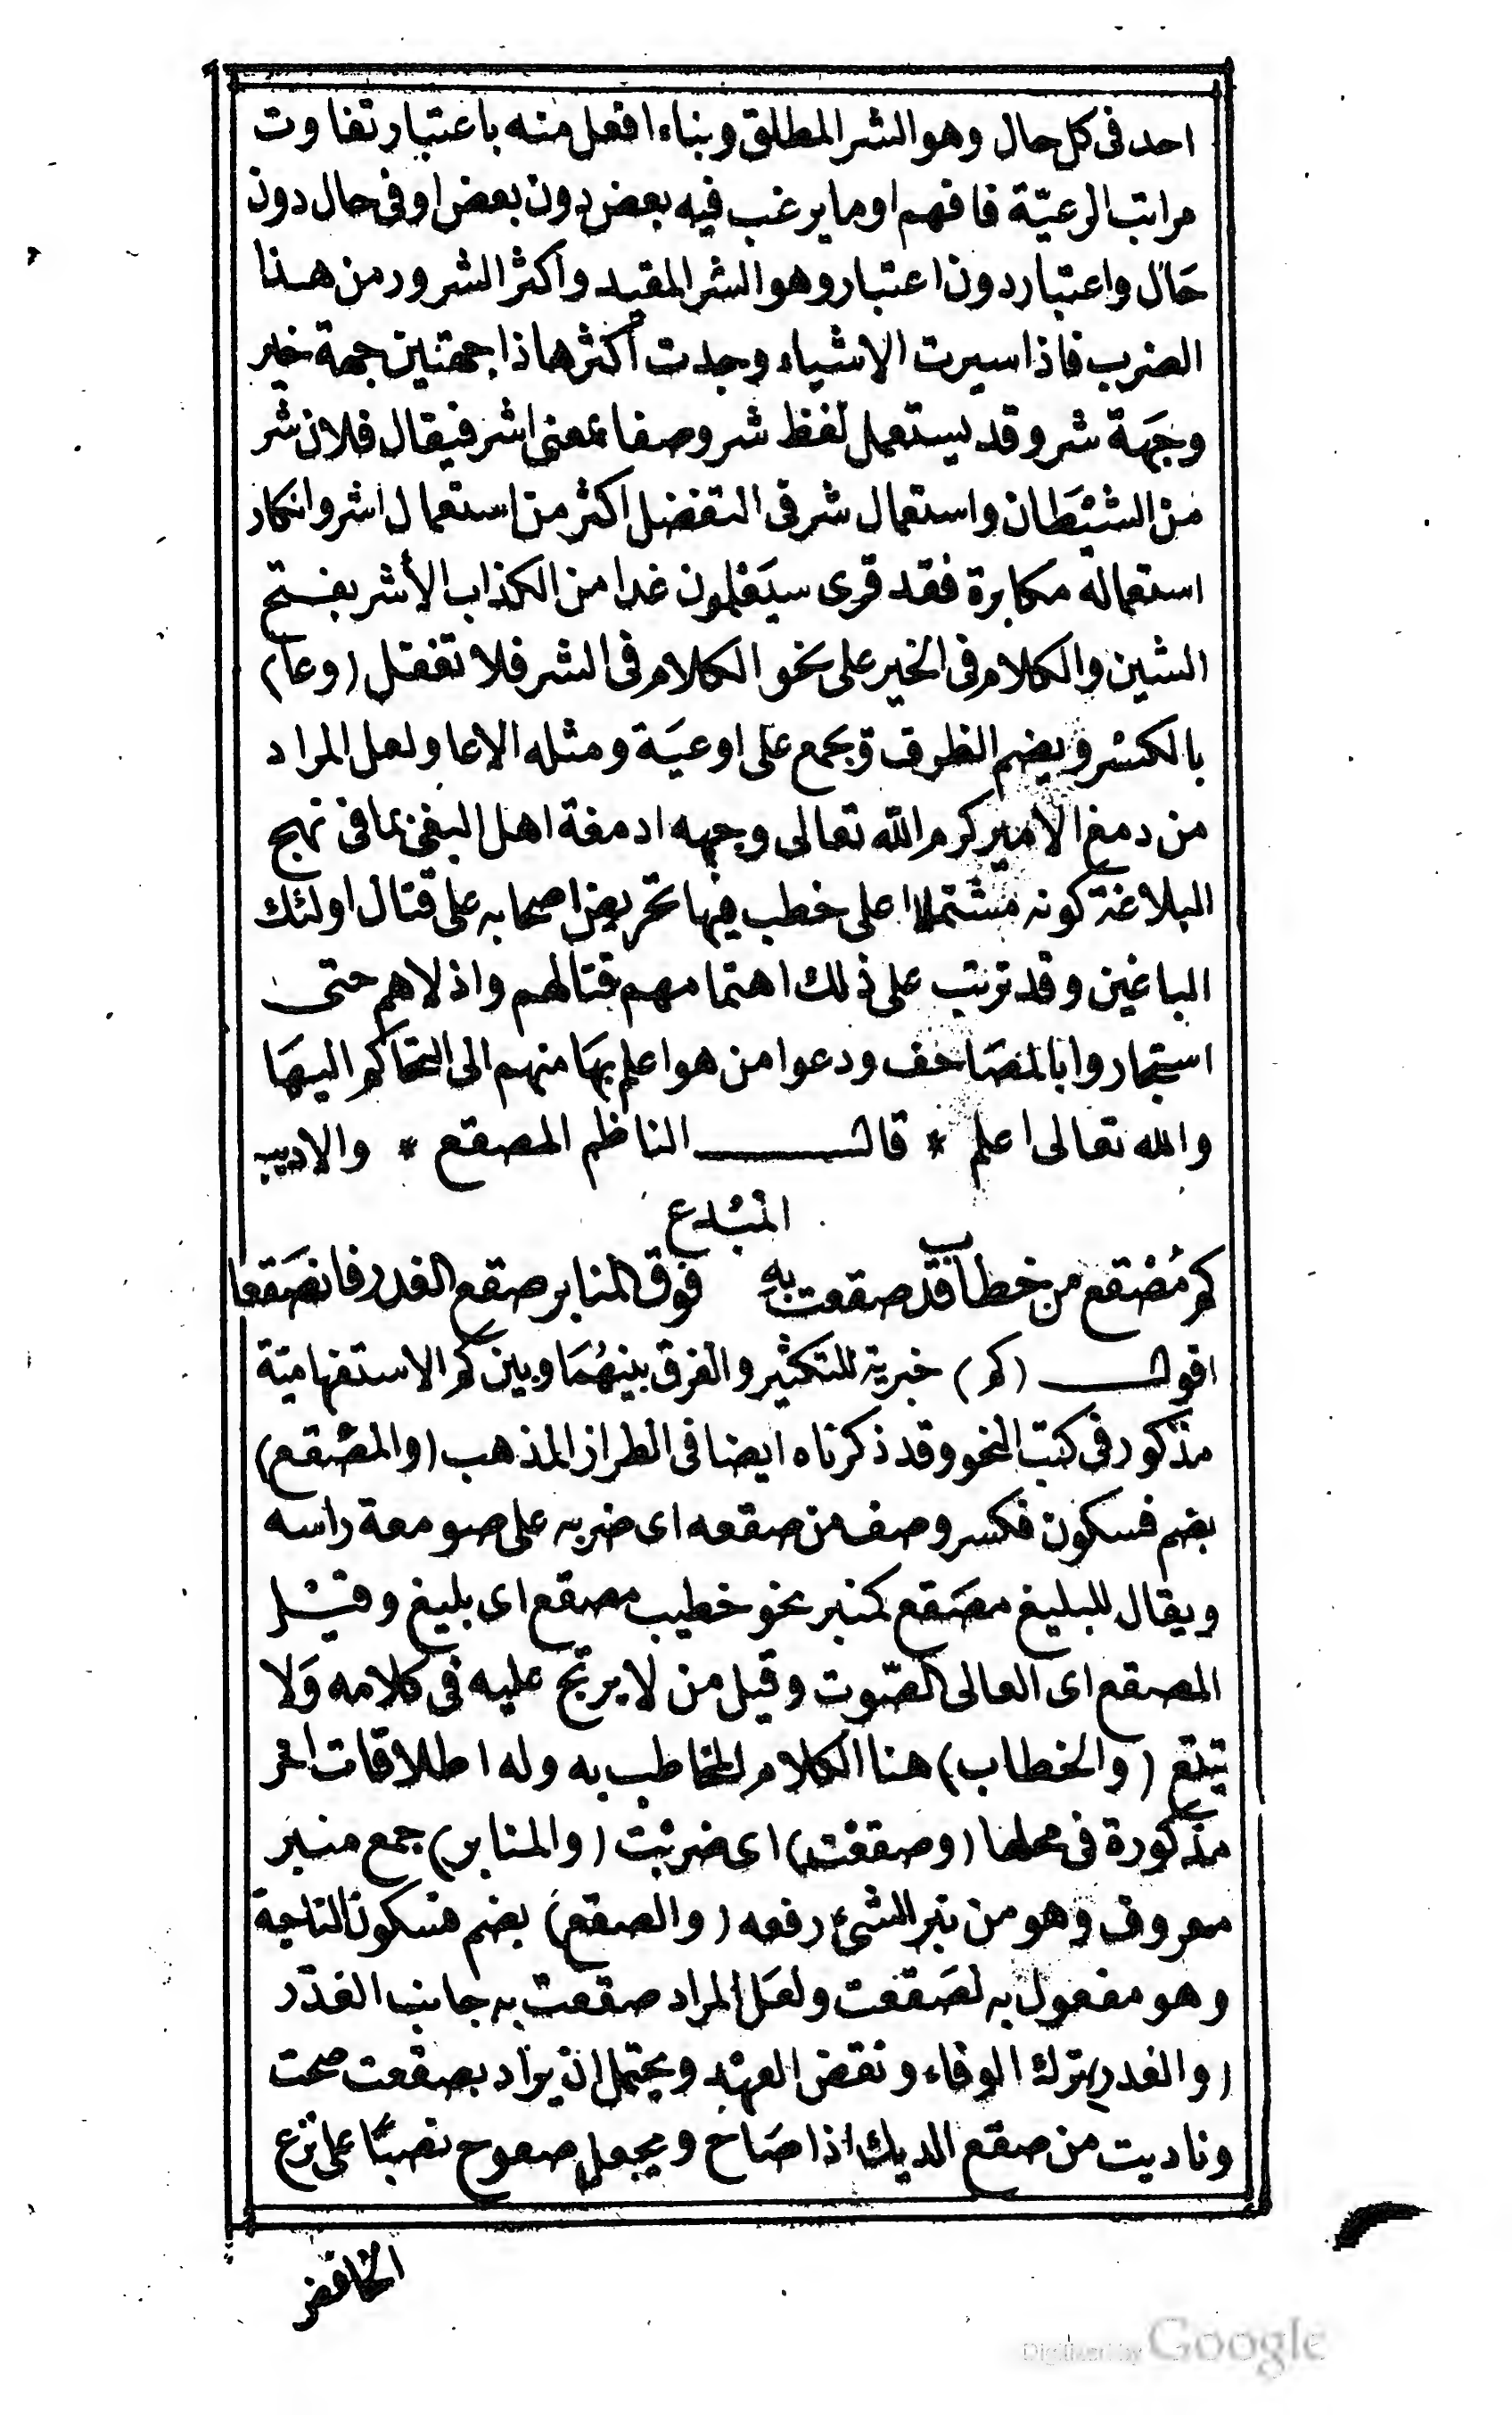 احد فى كل حال وهو الشر المطلق وبناء افعل منه باعتبار تفاوت
مراتب الرعيّة فافهم او ما يرغب فيه بعض دون بعض او فى حال دون
حَال واعتبار دون اعتبار وهو الشر المقيد واكثر الشرور من هذا
الضرب فاذا سيرت الاشياء وجدت أكثرها ذا جهتين جهة خير
وجَهة شر وقد يستعمل لفظ شر وصفا بمعنى اشر فيقال فلان شر
من الشيْطان واستعمال شر فى التفضل اكثر من استعمال اشر وانكار
استعماله مكابرة فقد قرى سيَعْلمون غدا من الكذاب الأشر بفتح
الشين والكلام فى الخير على نحو الكلام فى الشر فلا تغفل (وعا)
بالكسْر ويضم الظرف ويجمع على اوعيَة ومثله الاعا ولعل المراد
من دمغ الامير كرم الله تعالى وجهه ادمغة اهل البغى بما فى نهج
البلاغة كونه مشتملا على خطب فيها تحريض اصحابه على قتال اولئك
الباغين وقد ترتب على ذلك اهتمامهم بقتالهم واذلاهم حتى
استجاروا بالمصَاحف ودعوا من هو اعلم بهَا منهم الى التحاكم اليهَا
والله تعالى اعلم * قال الناظم المصقع * والاديب
المبْدع
كم مُصْقع من خطاب قد صقعت به فوق المنابر صقع الغدر فانصَقعا
اقول (كم) خبرية للتكثير والفرق بينهُمَا وبين كم الاستفهاميّة
مذكور فى كتب النحو وقد ذكرناه ايضا فى الطراز المذهب (والمصْقع)
بضم فسكون فكسر وصف من صقعه اى ضربه على صومعة راسه
ويقال للبليغ مصَقع كمنبر نحو خطيب مصقع اى بليغ وقيْل
المصقع اى العالى الصّوت وقيل من لا يرتج عليه فى كلامه وَلا
يتتع (والخطاب) هنا الكلام المخاطب به وله اطلاقات اخر
مذكورة فى محلها (وصقعْت) اى ضربْت (والمنابر) جمع منبر
معروف وهو من نبر الشئ رفعه (والصقع) بضم فسكون الناحية
وهو مفعول به لصَقعت ولعَل المراد صقعت به جانب الغدر
(والغدر) ترك الوفاء ونقض العهْد ويحتمل ان يراد بصقعت صحت
وناديت من صقع الديك اذا صَاح ويجعل صعوح نصبًا على نزع
الخافض
Digitized by Google